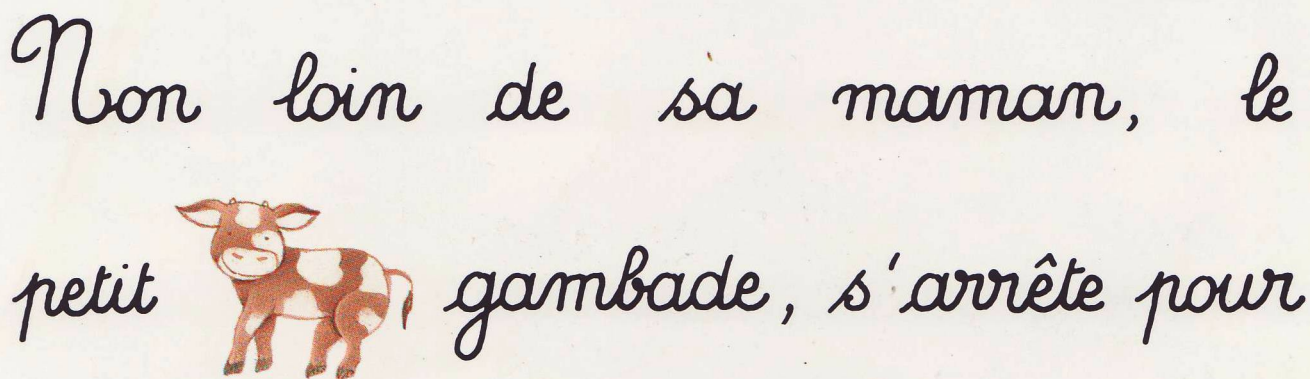 Non loin de sa maman, le
petit gambade, s'arrête pour